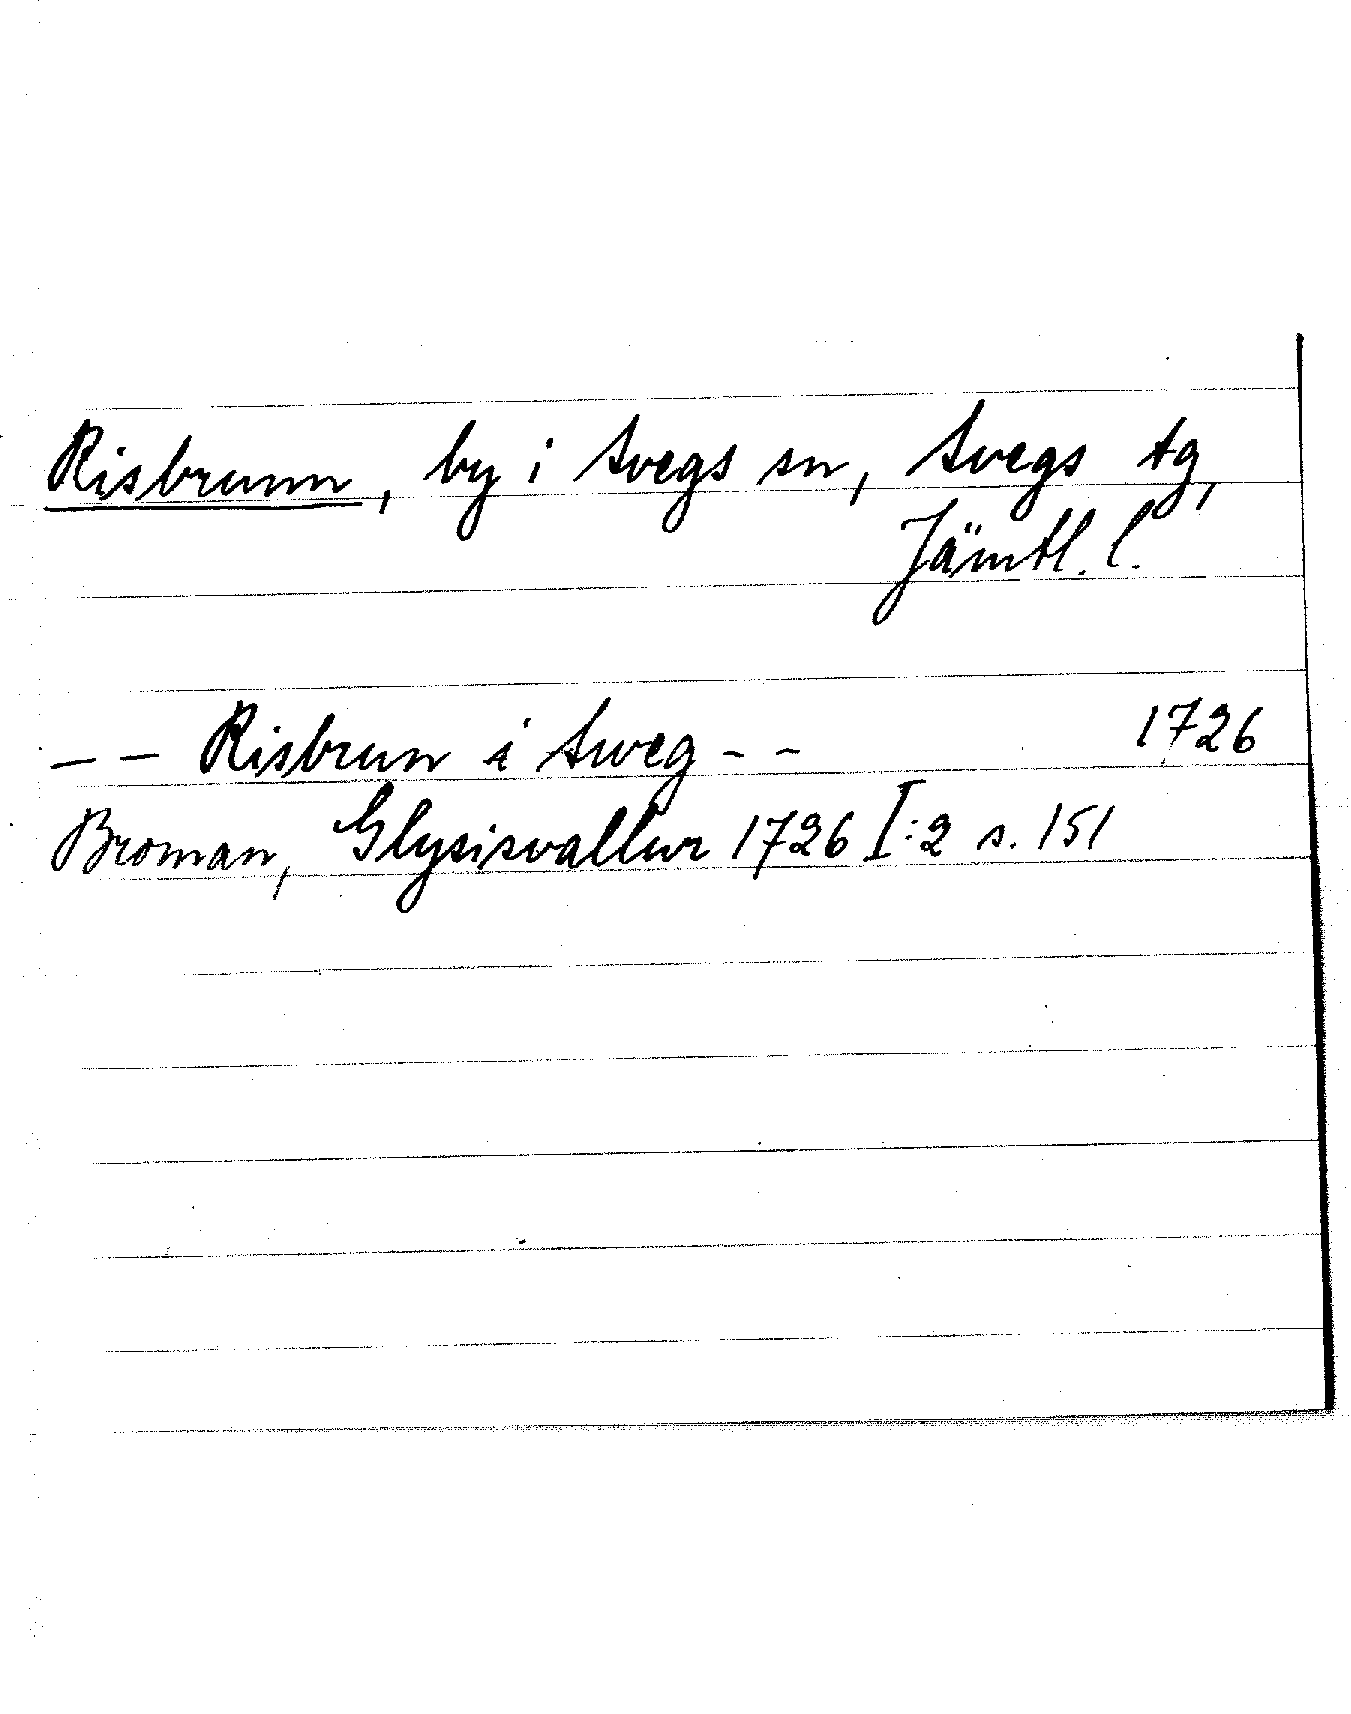 Risbrunn, by i Svegs sn, Svegs tg,
Jämtl. l.
– – Risbrun i Sweg – – 1726
Broman, Glysisvallur 1726 I:2 s. 151